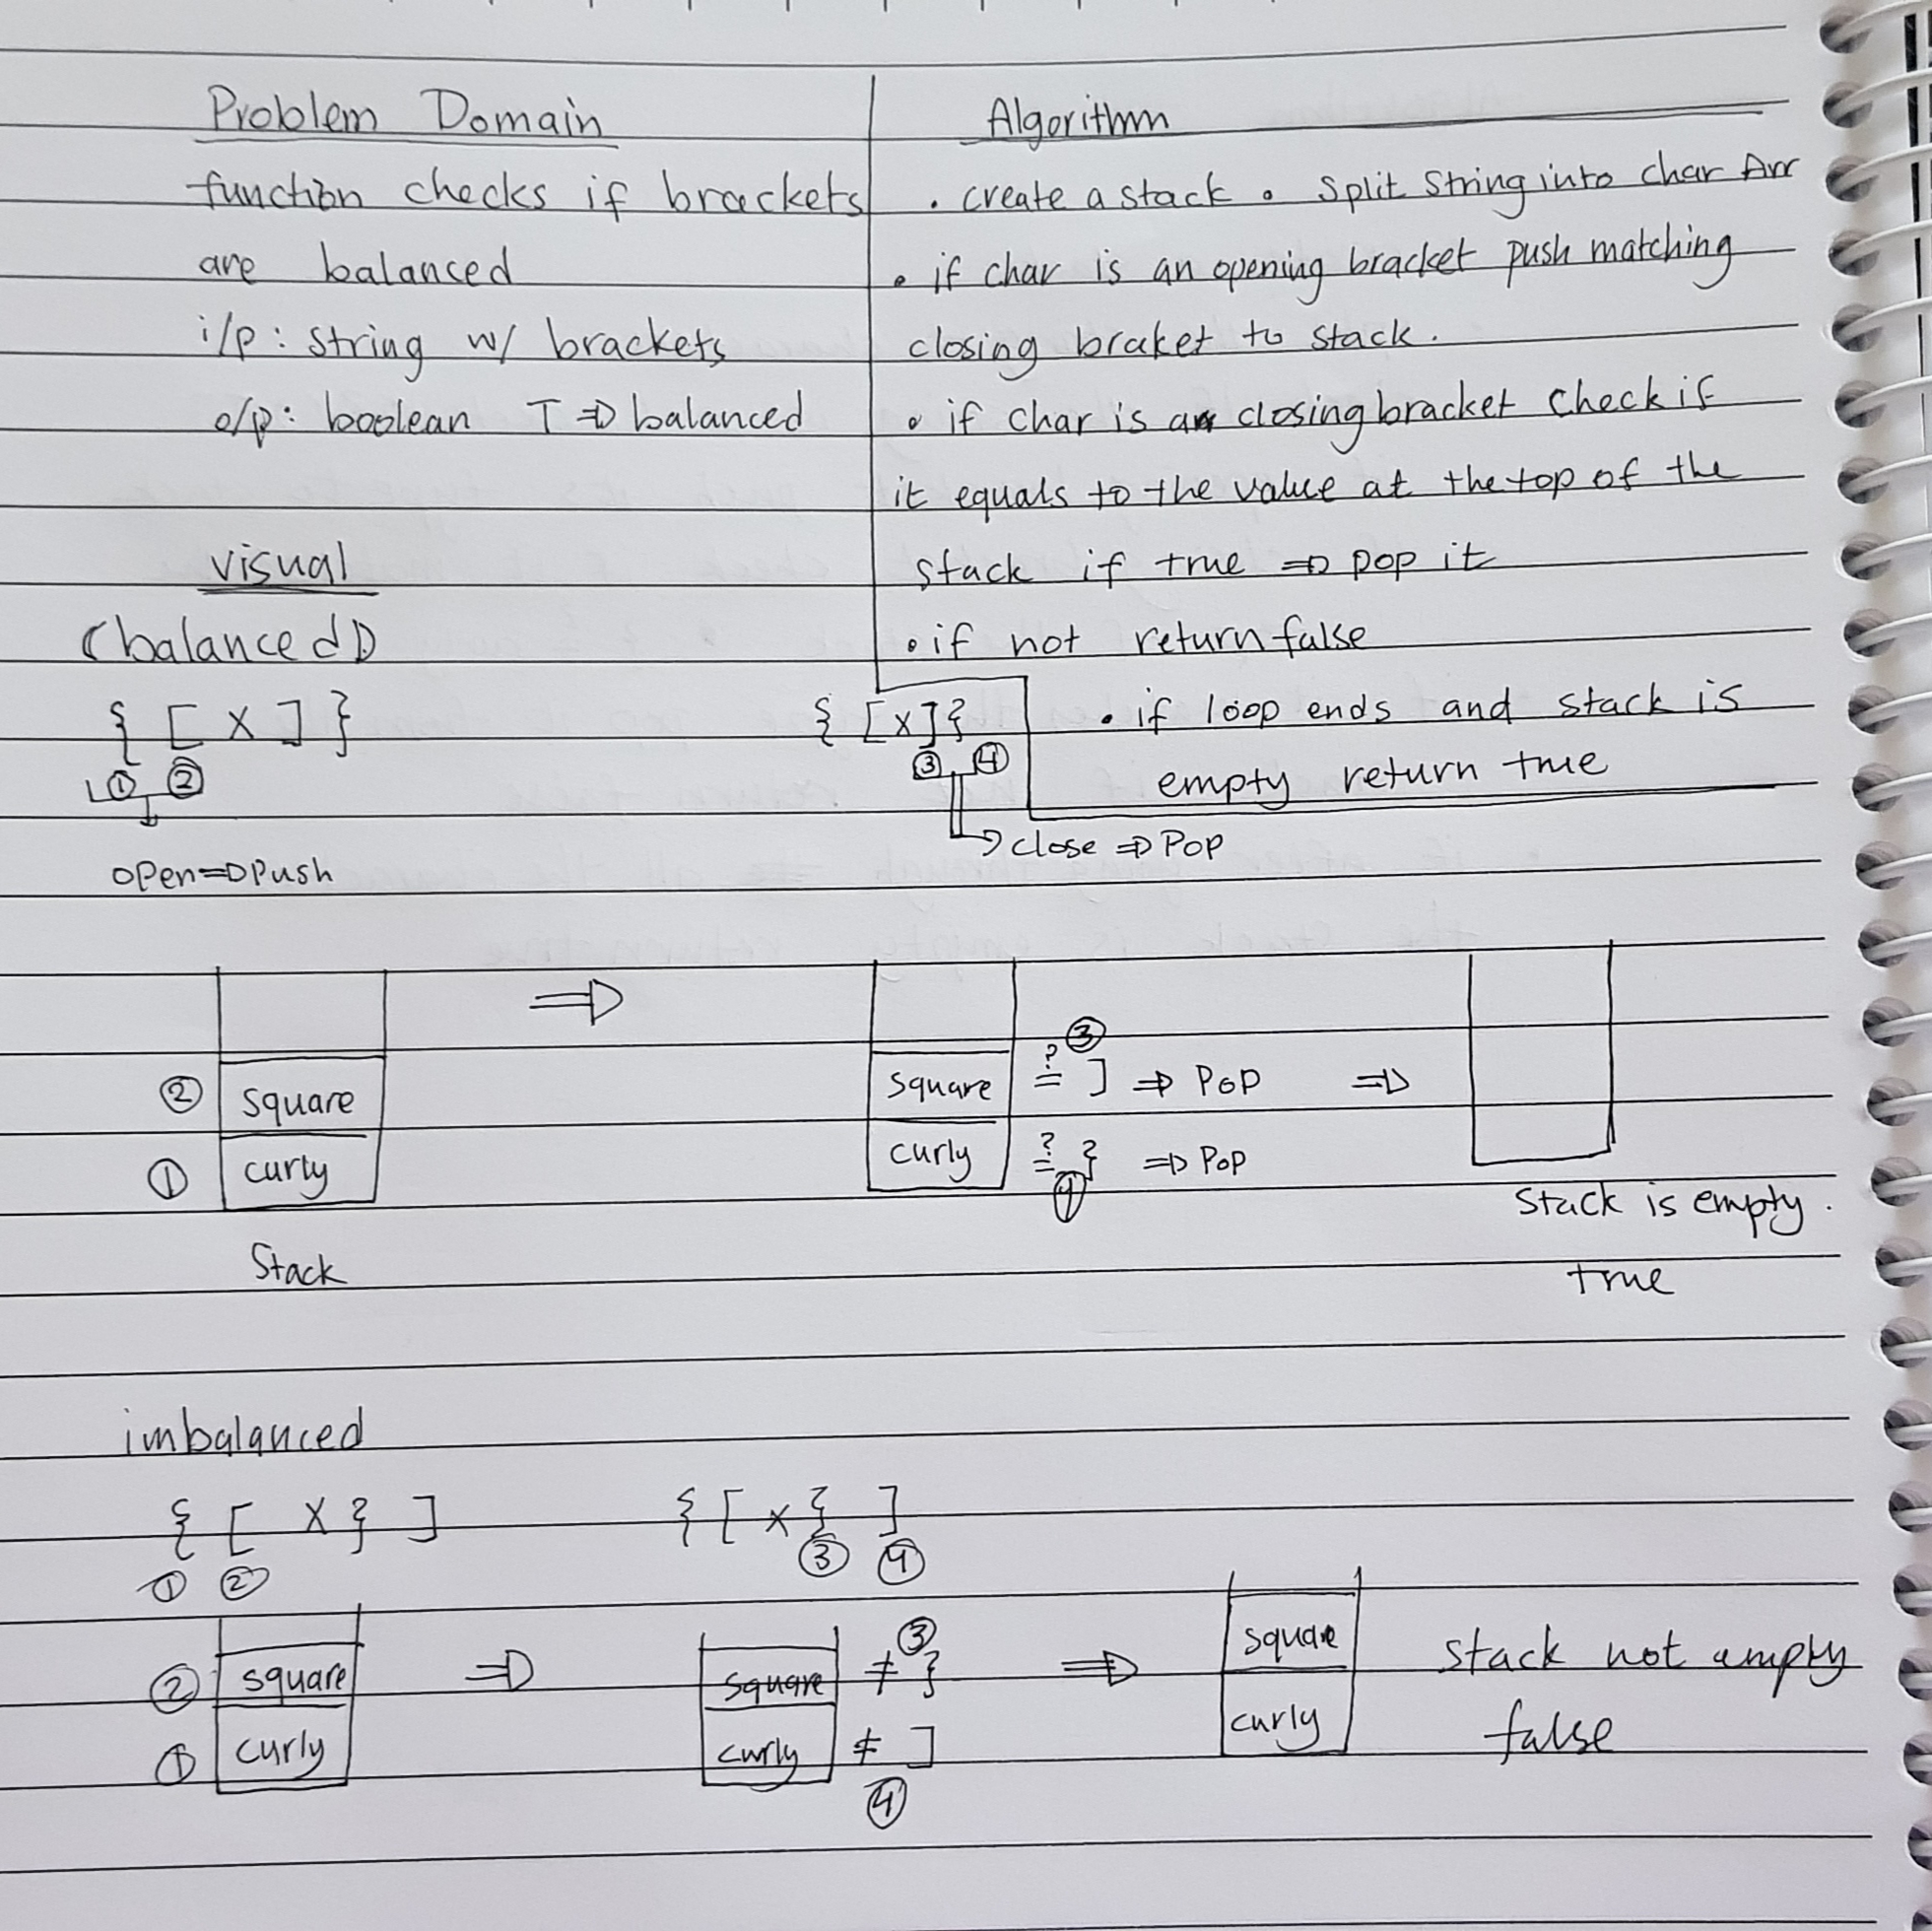 Problem Domain
function checks if brackets
are balanced
i/p : string w/ brackets
o/p : boolean T => balanced
Algorithm
. create a stack . split String into char Arr
. if char is an opening bracket push matching
closing braket to stack.
. if char is a closing bracket check if
it equals to the value at the top of the
stack if true => pop it
. if not return false
. if loop ends and stack is
empty return true
visual
(balanced)
{ [ X ] }
① ②
open => Push
{ [x] }
③ ④
→ close => Pop
② square
① curly
Stack
=>
③
square ?= ] => Pop =>
curly ?= } => Pop
④
Stack is empty.
true
imbalanced
{ [ X } ]
① ②
{ [ x } ]
③ ④
② square
① curly
=>
③
square ≠ }
curly ≠ ]
④
=>
square
curly
stack not empty
false